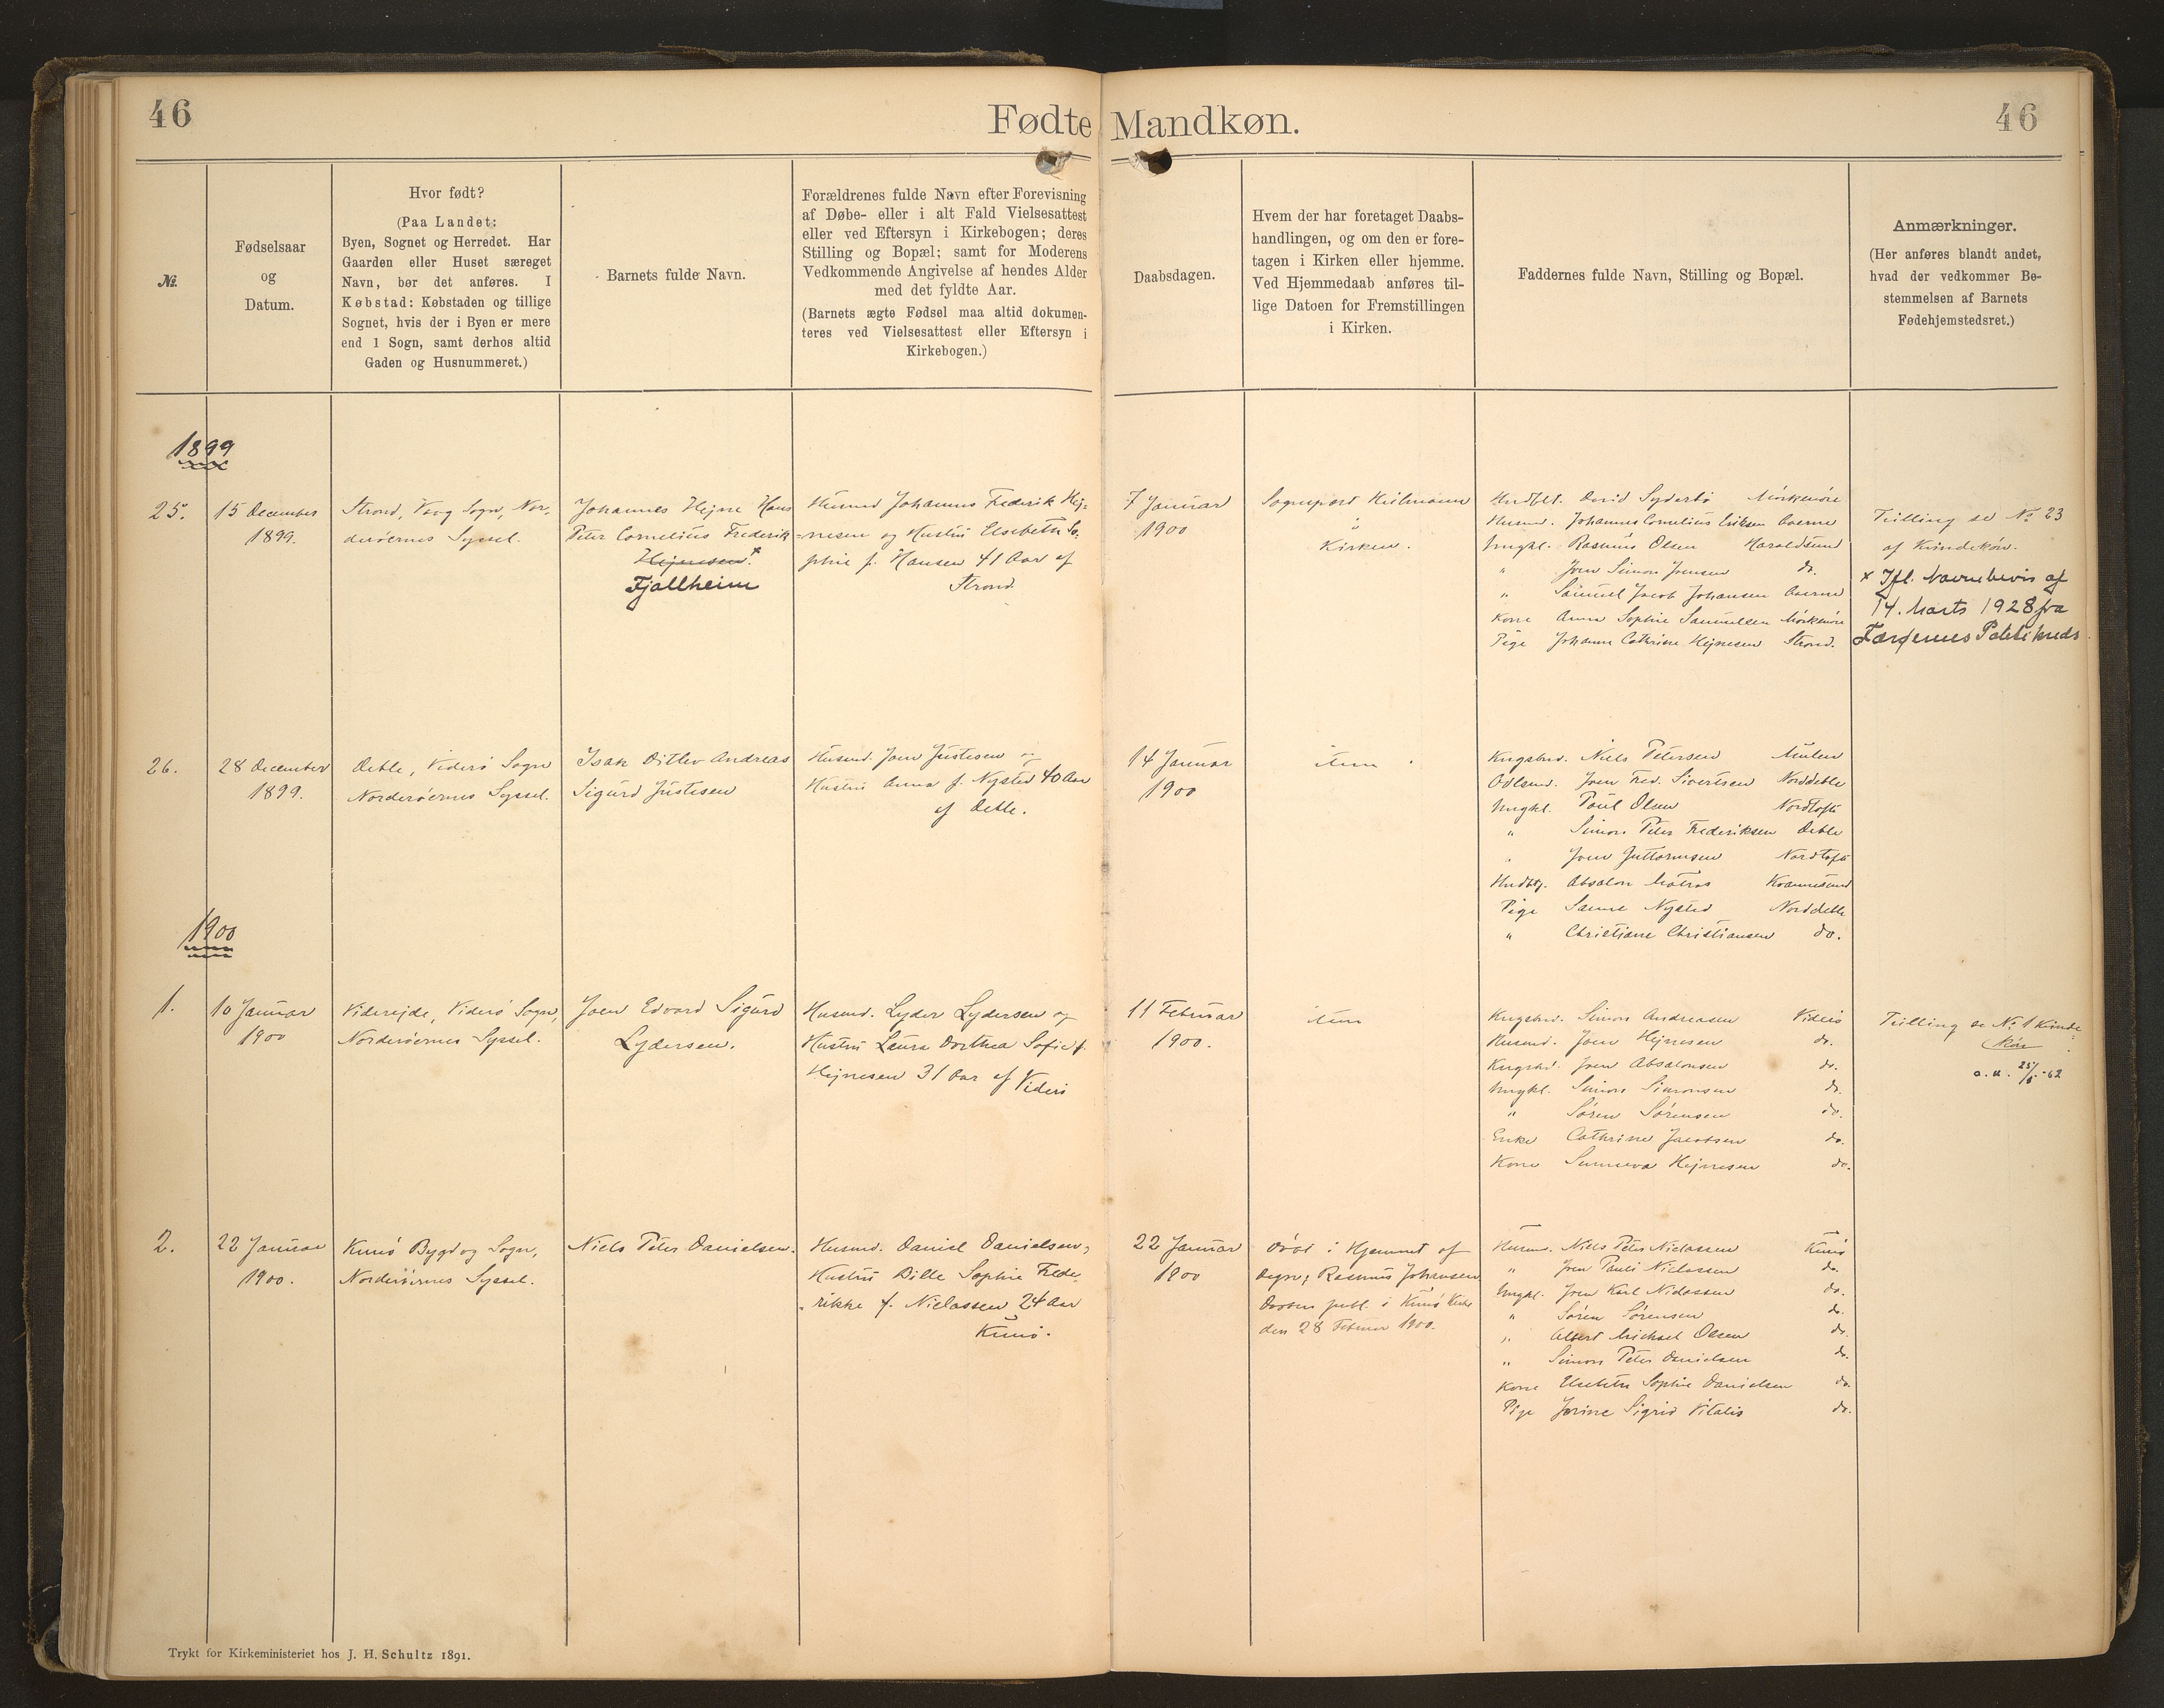 46
Fødte Mandkøn.
46
№
Fødselsaar
og
Datum.
Hvor født?
(Paa Landet:
Byen, Sognet og Herredet. Har
Gaarden eller Huset særeget
Navn, bør det anføres. I
Købstad: Købstaden og tillige
Sognet, hvis der i Byen er mere
end 1 Sogn, samt derhos altid
Gaden og Husnummeret.)
Barnets fulde Navn.
Forældrenes fulde Navn efter Forevisning
af Døbe- eller i alt Fald Vielsesattest
eller ved Eftersyn i Kirkebogen; deres
Stilling og Bopæl; samt for Moderens
Vedkommende Angivelse af hendes Alder
med det fyldte Aar.
(Barnets ægte Fødsel maa altid dokumen-
teres ved Vielsesattest eller Eftersyn i
Kirkebogen.)
Daabsdagen.
Hvem der har foretaget Daabs-
handlingen, og om den er fore-
tagen i Kirken eller hjemme.
Ved Hjemmedaab anføres til-
lige Datoen for Fremstillingen
i Kirken.
Faddernes fulde Navn, Stilling og Bopæl.
Anmærkninger.
(Her anføres blandt andet,
hvad der vedkommer Be-
stemmelsen af Barnets
Fødehjemstedsret.)
1899
25.
15 December
1899.
Strond, Vaag Sogn, Nor-
derøernes Syssel.
Johannes Hejne Hans
Peter Cornelius Frederik
Hejnesen. ×
Fjallheim
Husmd Johannes Frederik Hej-
nesen og Hustru Elsebeth So-
phie f. Hansen 41 Aar af
Strond
7 Januar
1900
Sognepræst
i
Kirken.
Husmd. Johannes Cornelius Eriksen
Ungkl. Rasmus Olsen Haraldsund
" Joen Simon Joensen do.
" Samuel Jacob Johansen
Kone Anna Sophie Samuelsen Mørkenøre
Pige Johanne Cathrine Hejnesen Strond.
Tvilling se No 23
af Kvindekøn.
× Ifl. Navnebevis af
14. Marts 1928 fra
Færøernes Politikreds
26.
28 December
1899.
Deble, Viderø Sogn
Norderøernes Syssel.
Isak Ditlev Andreas
Sigurd Justesen
Husmd. Joen Justesen og
Hustru Anna f. Nysted 40 Aar
af Deble.
14 Januar
1900
item
Kngsbd. Niels Petersen Mulen
Odlsmd. Joen Fred. Sivertsen Norddeble
Ungkl. Poul Olsen Nordtofte
" Simon Peter Frederiksen Deble
" Joen Guttormsen Nordtofte
Absalon Matras Kvannesund
Pige Sanne Nysted Norddeble
" Christiane Christiansen do.
1900
1.
10 Januar
1900
Viderejde, Viderø Sogn,
Norderøernes Syssel.
Joen Edvard Sigurd
Lydersen.
Husmd. Lyder Lydersen og
Hustru Laura Dorthea Sofie f.
Hejnesen 31 Aar af Viderø
11 Februar
1900.
item
Kngsbd. Simon Andreasen Viderø
Husmd. Joen Hejnesen do.
Kngsbd. Joen Absalonsen do.
Ungkl. Simon Simonsen do.
" Søren Sørensen do.
Enke Cathrine Jacobsen do.
Kone Sunneva Hejnesen do.
Tvilling se No 1 Kvinde-
køn
a. u. 25/5 -62
2.
22 Januar
1900.
Kunø Bygd og Sogn,
Norderøernes Syssel.
Niels Peter Danielsen.
Husmd. Daniel Danielsen,
Hustru Bille Sophie Frede-
rikke f. Niclassen 24 Aar
Kunø.
22 Januar
1900
Døbt i Hjemmet af
Degn, Rasmus Johansen
Daaben publ. i Kunø Kirke
den 28 Februar 1900.
Husmd. Niels Peter Niclassen Kunø
" Joen Pauli Niclassen do.
Ungkl. Joen Karl Niclassen do.
" Søren Sørensen do.
" Albert Michael Olsen do.
" Simon Peter Danielsen do.
Kone Elsebeth Sophie Danielsen do.
Pige Jorine Sigrid Vitalis do.
Trykt for Kirkeministeriet hos J. H. Schultz 1891.